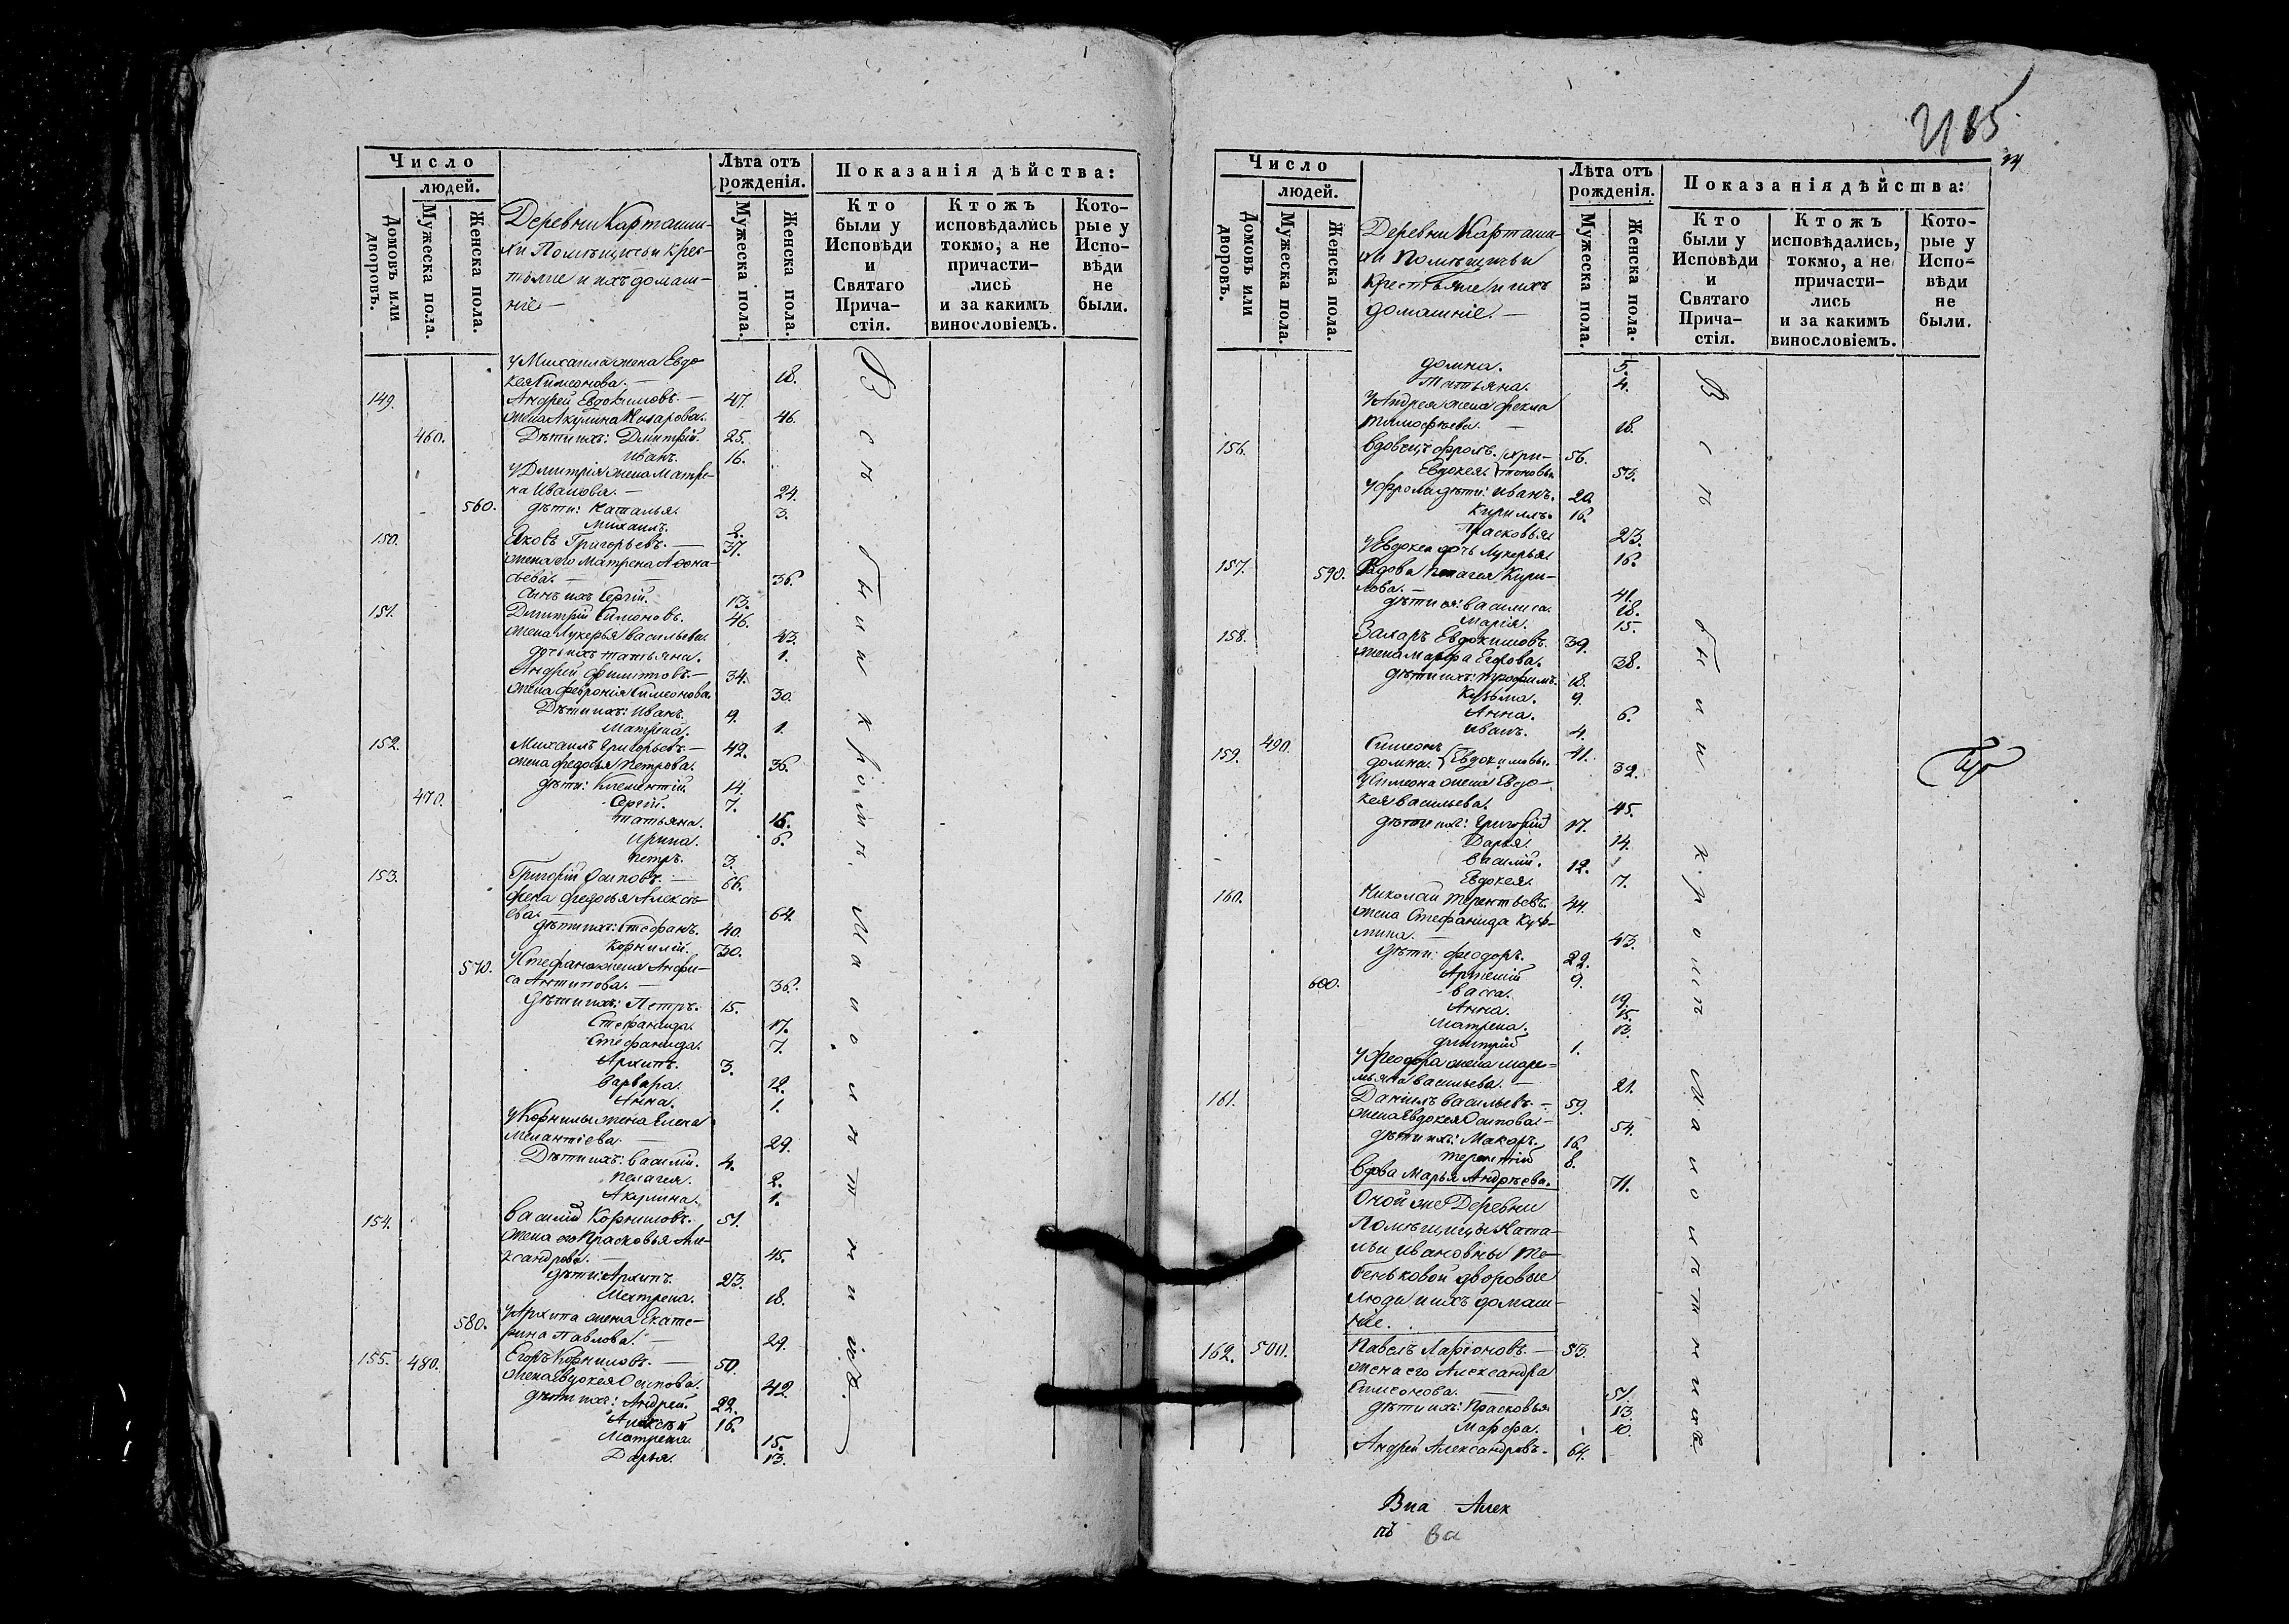 Число
людей.
Домовъ или дворовъ.
Мужеска пола.
Женска пола.
Деревни Карташи-
хи Помѣщичьи крес-
тьяне и ихъ домаш-
ніе
Лѣта отъ рожденія.
Мужеска пола.
Женска пола.
Показанія дѣйства:
Кто были у Исповѣди и Святаго Прича-стія.
Ктожъ исповѣдались токмо, а не причасти-лись и за какимъ винословіемъ.
Кото-рые у Испо-вѣди не были.
у Михаила жена Евдо-
кея Симеонова. 18.
149. Андрей Евдокимовъ. 47.
жена Акулина Назарова. 46.
460. Дѣти ихъ: Дмитрій. 25.
Иванъ. 16.
у Дмитрія жена Матре-
на Иванова. 24.
560. дѣти: Наталья. 3.
Михаилъ. 2.
150. Яковъ Григорьевъ. 37.
жена его Матрена Афона-
сьева. 36.
Сынъ ихъ Сергій. 13.
151. Дмитрій Симоновъ. 46.
жена Лукерья Васильева. 43.
дочь ихъ Татьяна. 1.
Андрей Филиповъ. 34.
жена Февронія Симеонова. 30.
Дѣти ихъ: Иванъ. 9.
Матрена. 1.
152. Михаилъ Григорьевъ. 42.
жена Федосья Петрова. 36.
дѣти: Климентій. 14.
470. Сергій. 7.
Татьяна. 16.
Ирина. 6.
Петръ. 3.
153. Григорій Осиповъ. 66.
жена Федосья Алексѣ-
ева. 64.
дѣти ихъ: Стефанъ. 40.
Корнилій. 30.
570. у Стефана жена Анфи-
са Антипова. 36.
дѣти ихъ: Петръ. 15.
Стефанида. 17.
Стефанида. 7.
Архипъ. 3.
Варвара. 12.
Анна. 1.
у Корнилы жена Елена
Мелантіева. 29.
Дѣти ихъ: Василій. 4.
Пелагея. 2.
Акулина. 1.
154. Василій Корниловъ. 51.
жена его Прасковья Але-
ксандрова. 45.
дѣти: Архипъ. 23.
Матрена. 18.
580. у Архипа жена Екате-
рина Павлова. 24.
155. 480. Егоръ Корниловъ. 50.
жена Евдокея Осипова. 42.
дѣти ихъ: Андрей. 22.
Алексѣй 16.
Матрена. 15.
Дарья. 13.
Всѣ были и кромѣ малолѣтнихъ.
Число
людей.
Домовъ или дворовъ.
Мужеска пола.
Женска пола.
Деревни Карташи-
хи Помѣщичьи
Крестьяне и ихъ
домашніе.
Лѣта отъ рожденія.
Мужеска пола.
Женска пола.
Показанія дѣйства:
Кто были у Исповѣди и Святаго Прича-стія.
Ктожъ исповѣдались, токмо, а не причасти-лись и за какимъ винословіемъ.
Кото-рые у Испо-вѣди не были.
домна. 5.
Татьяна. 4.
у Андрея жена Фекла
Тимофѣева. 18.
156. Вдовецъ Фролъ. 56.
Евдокея. 53.
у Фрола дѣти: Иванъ. 20.
Кириллъ. 16.
Прасковья 23.
у Евдокеи дочь Лукерья 16.
157. 590. Вдова Пелагея Кири-
лова. 41.
дѣти ея: Василиса. 18.
Марія. 15.
158. Захаръ Евдокимовъ. 39.
жена Марфа Егорова. 38.
дѣти ихъ: Трофимъ. 18.
Кузьма. 9.
Анна. 6.
Иванъ. 4.
159. 490. Симеонъ 41.
домна. Евдокимовы. 32.
у Симеона жена Евдо-
кея Васильева. 45.
дѣти ихъ: Григорій 17.
Дарья. 14.
Василій. 12.
Евдокея. 7.
160. Николай Терентьевъ. 44.
жена Стефанида Кузь-
мина. 43.
дѣти: Феодоръ. 22.
Артемій 9.
600. Васса. 19.
Анна. 15.
Матрена. 13.
Дмитрій 1.
у Феодора жена Маре-
мьяна Васильева. 21.
161. Даніилъ Васильевъ. 59.
жена Евдокея Осипова. 54.
дѣти ихъ: Макаръ. 16.
Терентій 8.
Вдова Марья Андрѣева. 71.
Оной же Деревни
Помѣщицы Ната-
льи Ивановны Те-
беньковой дворовые
люди и ихъ домаш-
ніе.
162. 500. Павелъ Ларіоновъ. 53.
жена его Александра
Симеонова. 51.
дѣти ихъ: Прасковья 13.
Марфа. 10.
Андрей Александровъ. 64.
Всѣ были кромѣ малолѣтнихъ